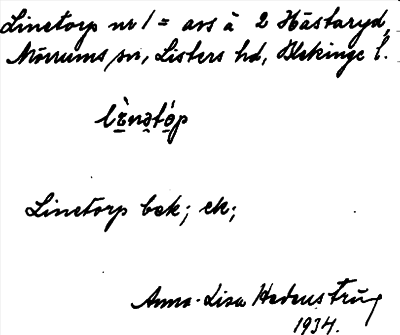 Linetorp nr 1 = avs å 2 Hästaryd,
Mörrums sn, Listers hd, Blekinge l.
Linetorp bek; ek;
Anna-Lisa Hedenstrüg
1934.